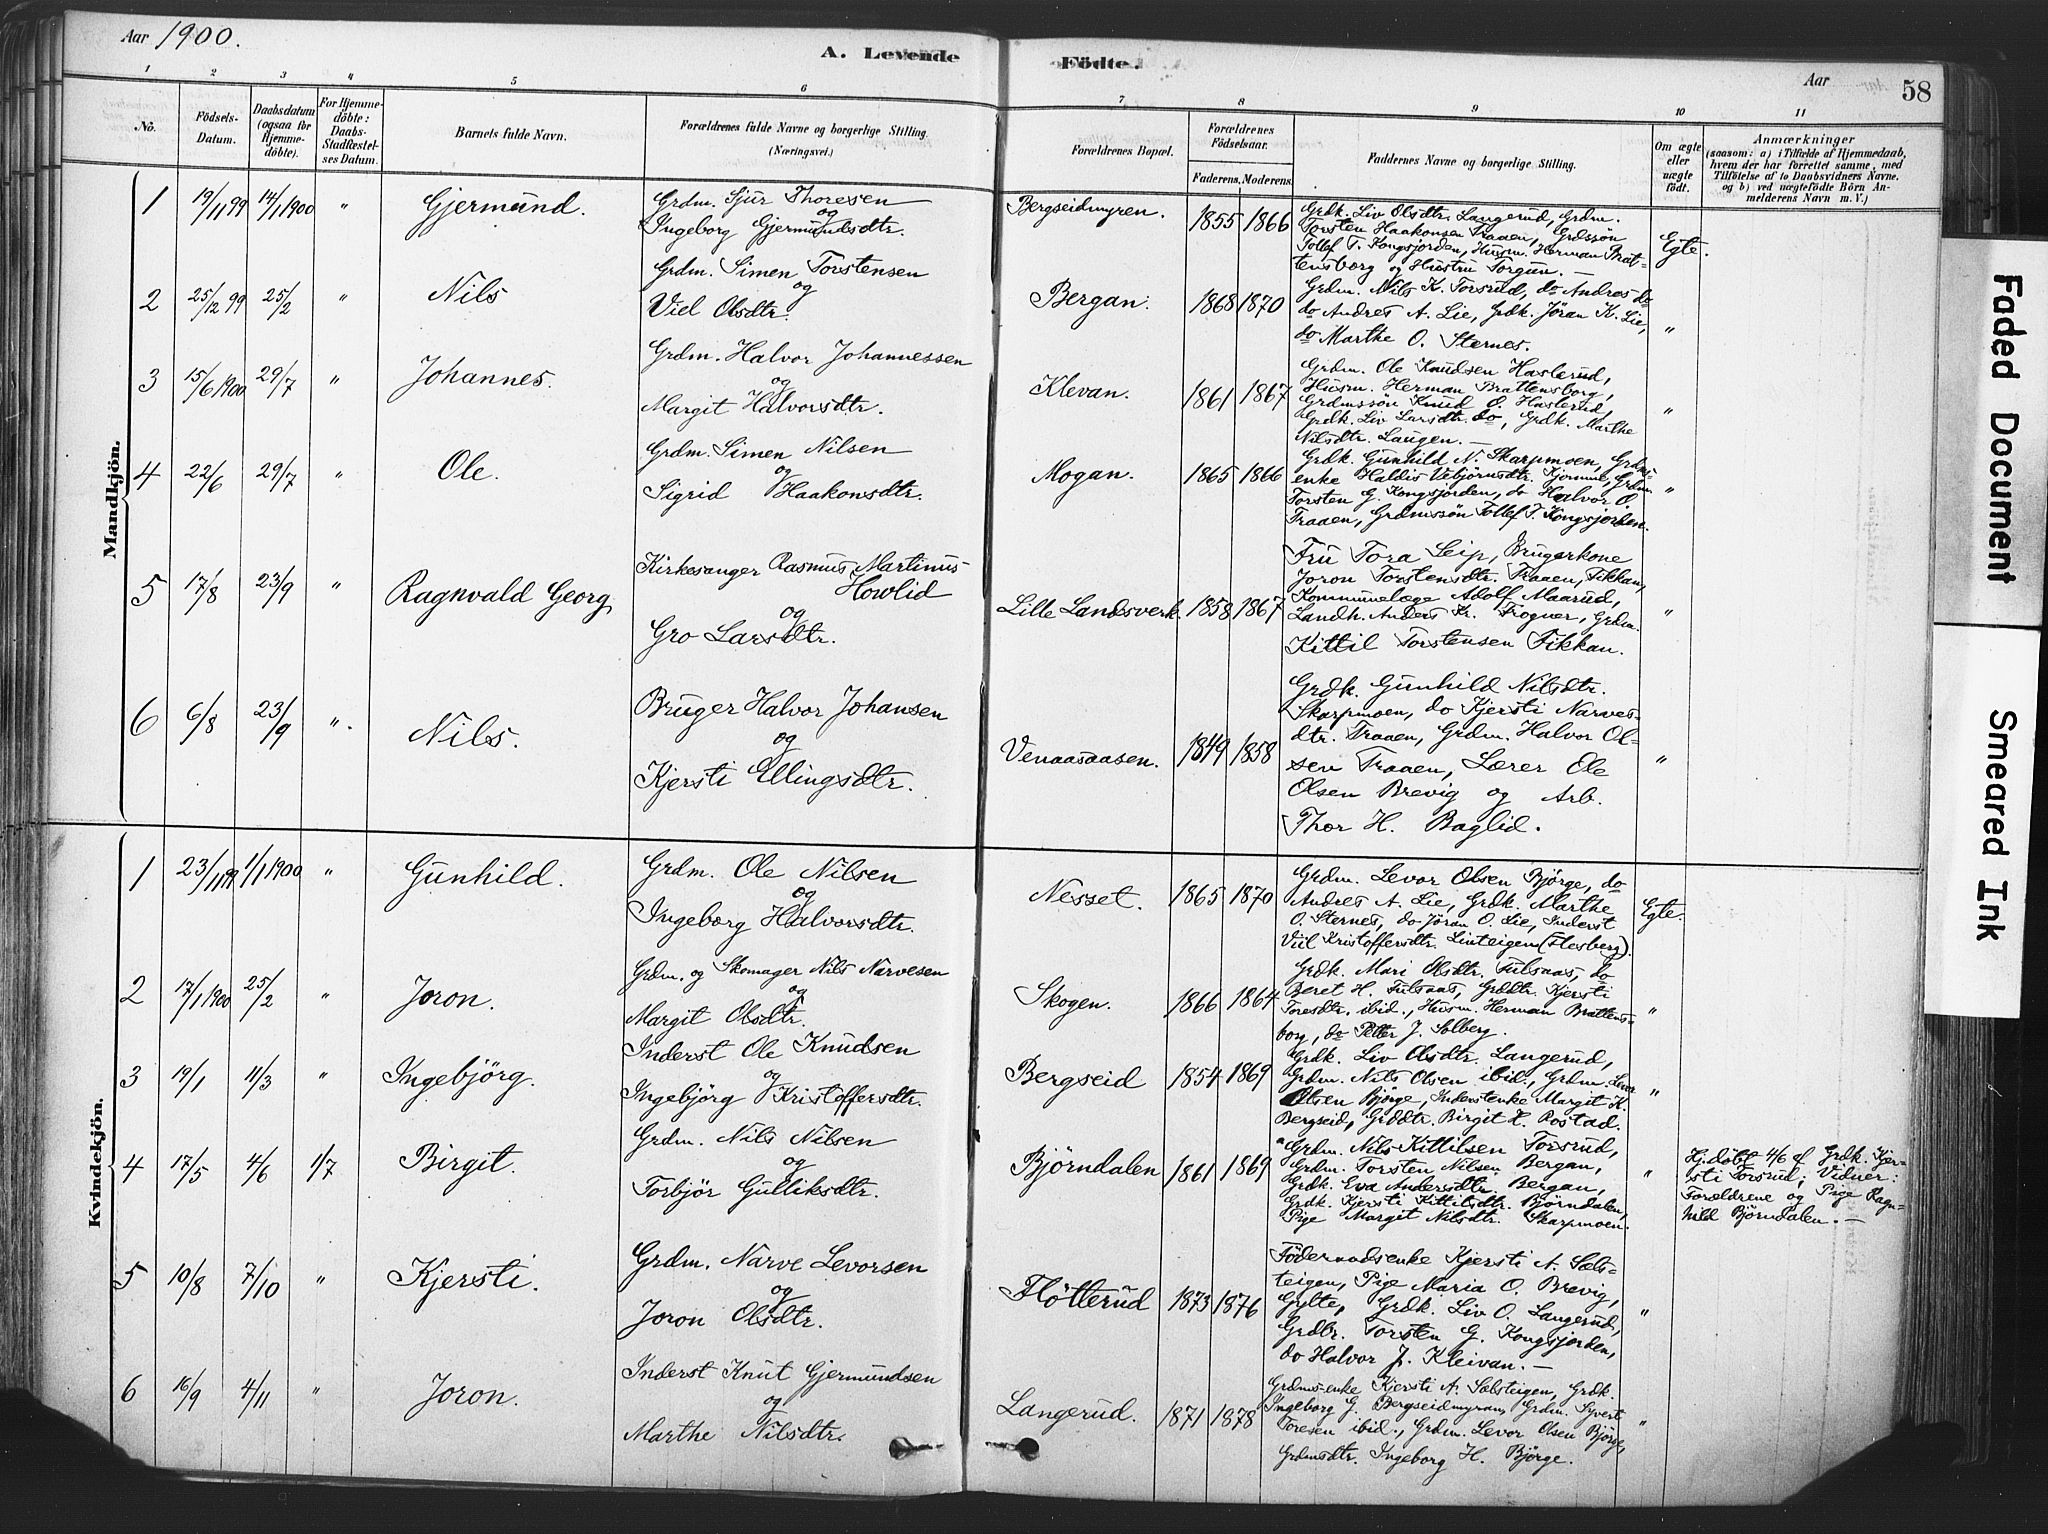 Aar 1900.
A. Levende Födte.
Aar
58
1 2 3 4 5 6 7 8 9 10 11
No. Födsels-Datum. Daabsdatum (ogsaa for Hjemme-döbte). For Hjemme-döbte: Daabs-Stadfæstelses Datum. Barnets fulde Navn. Forældrenes fulde Navne og borgerlige Stilling. (Næringsvei.) Forældrenes Bopæl. Forældrenes Födselsaar. Faderens. Moderens. Faddernes Navne og borgerlige Stilling. Om ægte eller uægte födt. Anmærkninger (saasom: a) i Tilfælde af Hjemmedaab, hvem der har forrettet samme, med Tilföielse af to Daabsvidners Navne. og b) ved uægtefödte Börn Anmelderens Navn m. V.)
Mandkjön.
1 19/11 99 14/1 1900 " Gjermund. Grdm. Sjur Thoresen og Ingeborg Gjermundsdtr. Bergseidmyren. 1855 1866 Egte.
Grdk. Liv Olsdtr. Langerud, Grdm.
Torsten Haakonsen Traaen, Grdssön
Tollef T. Kongsjorden, Husm. Herman Brat-
tensborg og Hustru Torgun. —
2 25/12 99 25/2 " Nils Grdm. Simen Torstensen og Viel Olsdtr. Bergan. 1868 1870 "
Grdm. Nils K. Torsrud, do Andres do
do Andres A. Lie, Grdk. Jöran K. Lie,
do Marthe O. Sternes.
3 15/6 1900 29/7 " Johannes. Grdm. Halvor Johannessen og Margit Halvorsdtr. Klevan. 1861 1867 "
Grdm. Ole Knudsen Haslerud,
Husm. Herman Brattensborg,
Grdmssön Knud O. Haslerud,
Grdk. Liv Larsdtr. do, Grdk. Marthe
Nilsdtr. Laugen. —
4 22/6 29/7 " Ole. Grdm. Simen Nilsen og Sigrid Haakonsdtr. Mogan. 1865 1866 "
Grdk. Gunhild N. Skarpmoen, Grdms-
enke Haldis Vebjörnsdtr. Kjömme, Grdm.
Torsten G. Kongsjorden, do Halvor O.
Traaen, Grdmssön Tollef T. Kongsjorden.
5 17/8 23/9 " Ragnvald Georg Kirkesanger Rasmus Martinus Howlid og Gro Larsdtr. Lille Landsverk. 1858 1867 "
Fru Tora Seip, Brugerkone
Joron Torstensdtr. Traaen, Fikkan,
Kommunelæge Adolf Maarud,
Landh. Anders Kr. Trogner, Grdm.
Kittil Torstensen Fikkan.
6 6/8 23/9 " Nils. Bruger Halvor Johansen og Kjersti Ellingsdtr. Venaasaasen. 1849 1858 "
Grdk. Gunhild Nilsdtr.
Skarpmoen, do Kjersti Narves-
dtr. Traaen, Grdm. Halvor Ol-
sen Traaen, Lærer Ole
Olsen Brevig og Arb.
Thor H. Baglid.
Kvindekjön.
1 23/11 99 1/1 1900 " Gunhild. Grdm. Ole Nilsen og Ingeborg Halvorsdtr. Nesset. 1865 1870 Egte.
Grdm. Levor Olsen Björge, do
Andres A. Lie, Grdk. Marthe
O. Sternes, do Jöran O. Lie, Inderst
Viil Kristoffersdtr. Linteigen (Flesberg).
2 17/1 1900 25/2 " Joron. Grdm. og Skomager Nils Narvesen og Margit Olsdtr. Skogen. 1866 1864 "
Grdk. Mari Olsdtr. Fulsaas, do
Beret H. Fulsaas, Grddtr. Kjersti
Toresdtr. ibid., Husm. Herman Brattens-
borg, do Petter J. Solberg.
3 19/1 11/3 " Ingebjörg. Inderst Ole Knudsen og Ingebjörg Kristoffersdtr. Bergseid 1854 1869 "
Grdk. Liv Olsdtr. Langerud,
Grdm. Nils Olsen ibid., Grdm. Levor
Olsen Björge, Inderstenke Margit K.
Bergseid, Grddtr. Birgit L. Rostad.
4 17/5 4/6 1/7 Birgit. Grdm. Nils Nilsen og Torbjör Gulliksdtr. Björndalen 1861 1869 "
Grdm. Nils Kittilsen Torsrud,
Grdm. Torsten Nilsen Bergan,
Grdk. Eva Andersdtr. Bergan,
Grdk. Kjersti Kittilsdtr. Björndalen,
Pige Margit Nilsdtr. Skarpmoen.
Hj. döbt 4/6 af Grdk. Kjer-
sti Torsrud; Vidner:
Forældrene og Pige Ragn-
hild Björndalen. —
5 10/8 7/10 " Kjersti. Grdm. Narve Levorsen og Joron Olsdtr. Flötterud 1873 1876 "
Föderaadsenke Kjersti A. Sæls-
teigen, Pige Maria O. Brevig,
Gylte, Grdk. Liv O. Langerud,
Grdbr. Torsten G. Kongsjorden,
do Halvor J. Kleivan. —
6 16/9 4/11 " Joron. Inderst Knut Gjermundsen og Marthe Nilsdtr. Langerud. 1871 1878 "
Grdmsenke Kjersti A. Sælsteigen, Grdk.
Ingeborg G. Bergseidmyran, Grdm. Syvert
Toresen ibid., Grdm. Levor Olsen Björge,
Grdmsdtr. Ingeborg H. Björge.
Faded Document
Smeared Ink